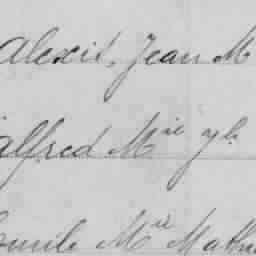 Alexis, Jean M
Alfred Mie yh
Emile Mie Mathu